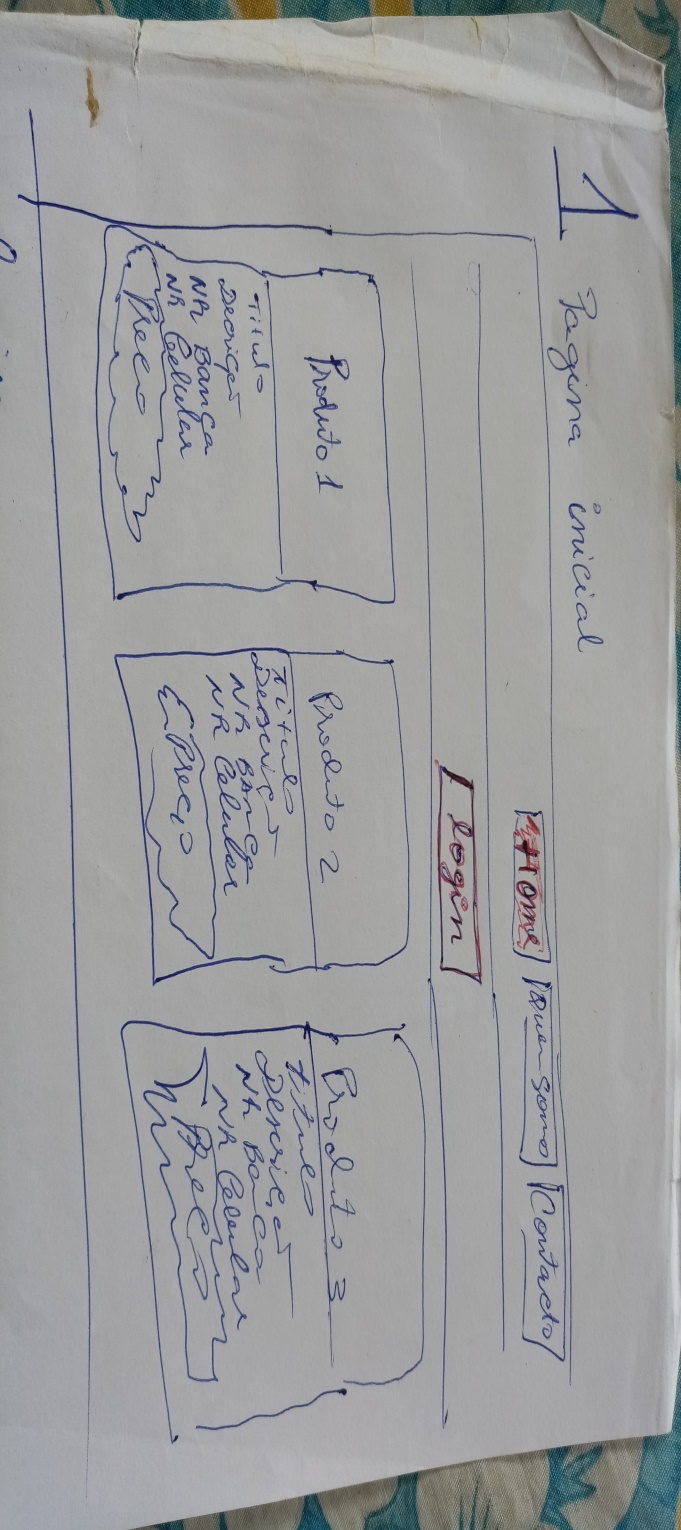 1 Pagina inicial
Home Quen somo Contacto
login
Produto 1
Titulo
NR Banca
NR Celular
Preco
Produto 2
Titulo
NR Banca
NR Celular
Preço
Produto 3
titulo
NR Baca
NR Celular
Preco